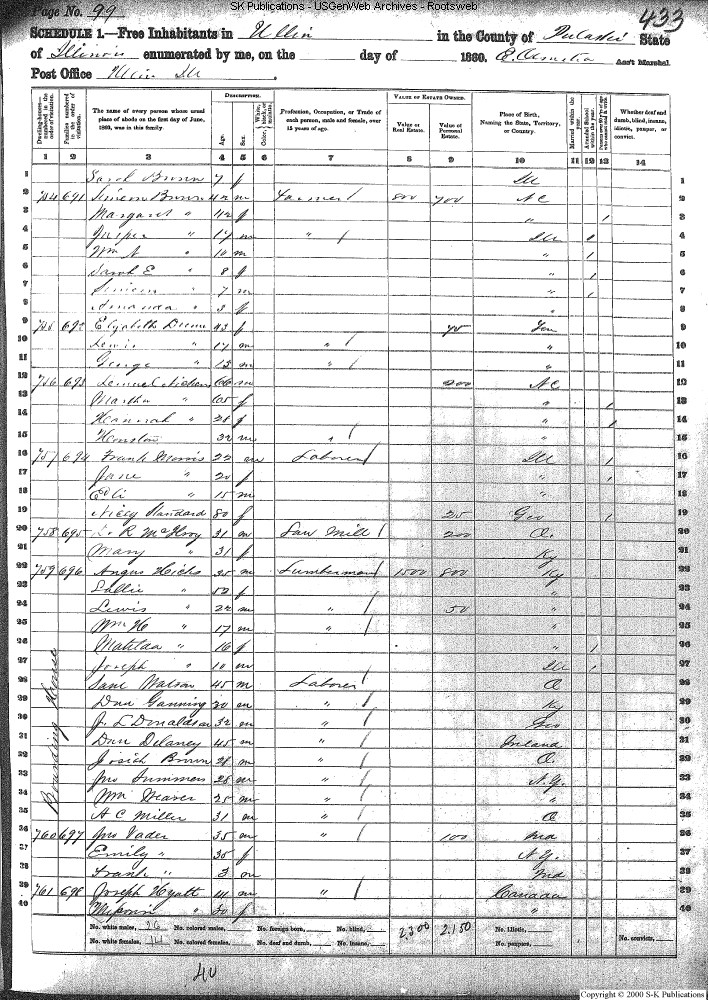 SK Publications - USGenWeb Archives - Rootsweb
Page No. 99
433
SCHEDULE 1.—Free Inhabitants in Ullin in the County of Pulaski State
of Illinois enumerated by me, on the day of 1860. Ass't Marshal.
Post Office Ullin Ill
DESCRIPTION. VALUE OF ESTATE OWNED.
Dwelling-houses—numbered in the order of visitation.
Families numbered in the order of visitation.
The name of every person whose usual place of abode on the first day of June, 1860, was in this family.
Age.
Sex.
Color, White, black, or mulatto.
Profession, Occupation, or Trade of each person, male and female, over 15 years of age.
Value of Real Estate.
Value of Personal Estate.
Place of Birth, Naming the State, Territory, or Country.
Married within the year.
Attended School within the year.
Whether deaf and dumb, blind, insane, idiotic, pauper, or convict.
1 2 3 4 5 6 7 8 9 10 11 12 13 14
1 Sarah Brown 7 f Ill 1
2 754 691 Simeon Brown 42 m Farmer / 800 700 NC 2
3 Margaret " 42 f " / 3
4 Jasper " 17 m " / Ill / 4
5 Wm A " 10 m " / 5
6 Sarah E " 8 f " / 6
7 Simeon " 7 m " / 7
8 Amanda " 3 f " 8
9 755 692 Elizabeth 43 f 75 Ten 9
10 Lewis " 17 m " / " 10
11 George " 15 m " / " 11
12 756 693 Lemuel 66 m 200 NC 12
13 Martha " 65 f " / 13
14 Hannah " 28 f " / 14
15 Houston 32 m " / " 15
16 757 694 Frank Morris 22 m Laborer / Ill / 16
17 Jane " 20 f " / 17
18 Eli " 15 m " 18
19 Standard 80 f 25 Geo 19
20 758 695 R McElroy 31 m Saw Mill / 200 O. 20
21 Mary " 31 f Ky 21
22 759 696 Angus Hicks 55 m Lumberman / 1500 800 Ky 22
23 Sallie " 52 f " 23
24 Lewis " 22 m " / 50 " 24
25 Wm H " 17 m " / " 25
26 Matilda " 16 f " / 26
27 Joseph " 10 m Ill / 27
28 Watson 45 m Laborer O 28
29 Ganning 30 m " / Ky 29
30 J. L Donaldson 32 m " / Geo 30
31 Dan Delaney 45 m " / Ireland 31
32 Josiah Brown 28 m " / O. 32
33 Jno Summers 28 m " / N.Y. 33
34 Wm Weaver 25 m " / " 34
35 A C Miller 31 m " / O 35
Boarding House
36 760 697 Jno Vader 35 m " / 100 Ind 36
37 Emily " 35 f N.Y. 37
38 Frank " 3 m Ind 38
39 761 698 Joseph Hyatt 41 m " / Canada 39
40 " 30 f " 40
No. white males, 26 No. colored males, No. foreign born, No. blind, 2300 2150 No. idiotic, No. convicts,
No. white females, 14 No. colored females, No. deaf and dumb, No. insane, No. paupers,
40
Copyright © 2000 S-K Publications